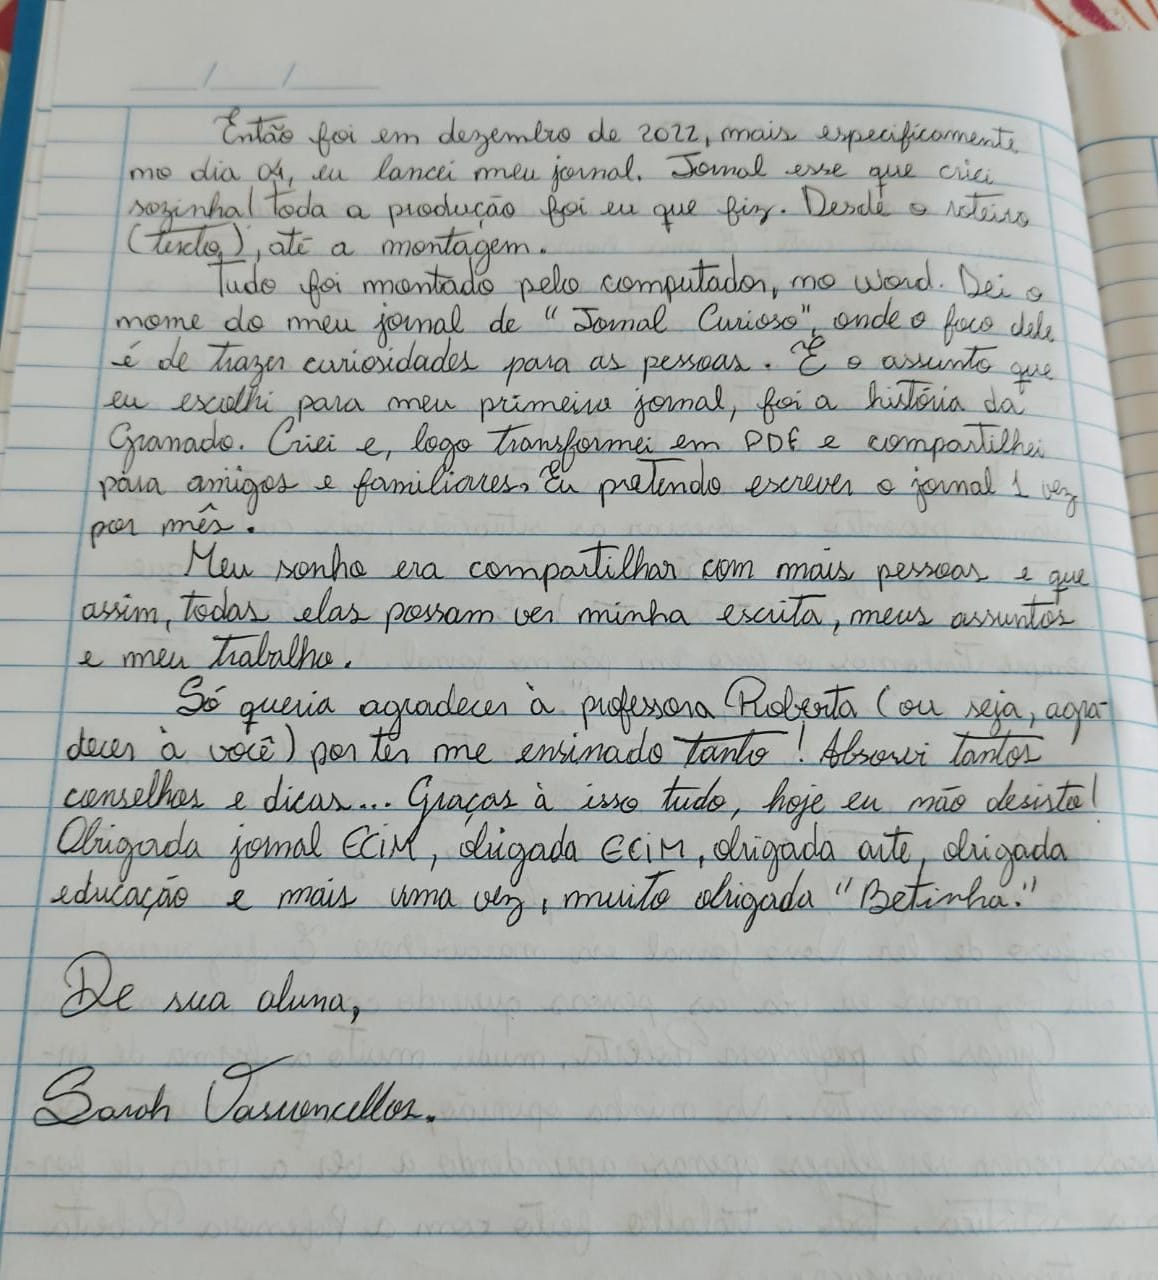 Então foi em dezembro de 2022, mais especificamente
no dia 04, eu lancei meu jornal. Jornal esse que criei
sozinha! toda a produção foi eu que fiz. Desde o roteiro
(texto), até a montagem.
Tudo foi montado pelo computador, no Word. Dei o
nome do meu jornal de "Jornal Curioso", onde o foco dele
é de trazer curiosidades para as pessoas. E o assunto que
eu escolhi para meu primeiro jornal, foi a história da
Granado. Criei e, logo transformei em PDF e compartilhei
para amigos e familiares. Eu pretendo escrever o jornal 1 vez
por mês.
Meu sonho era compartilhar com mais pessoas e que
assim, todas elas possam ver minha escrita, meus assuntos
e meu trabalho.
Só queria agradecer à professora Roberta (ou seja, agra-
decer à você) por ter me ensinado tanto! Absorvi tantos
conselhos e dicas... Graças à isso tudo, hoje eu não desisto!
Obrigada jornal ECIM, obrigada ECIM, obrigada arte, obrigada
educação e mais uma vez, muito obrigada "Betinha."
De sua aluna,
Sarah Vasconcellos.